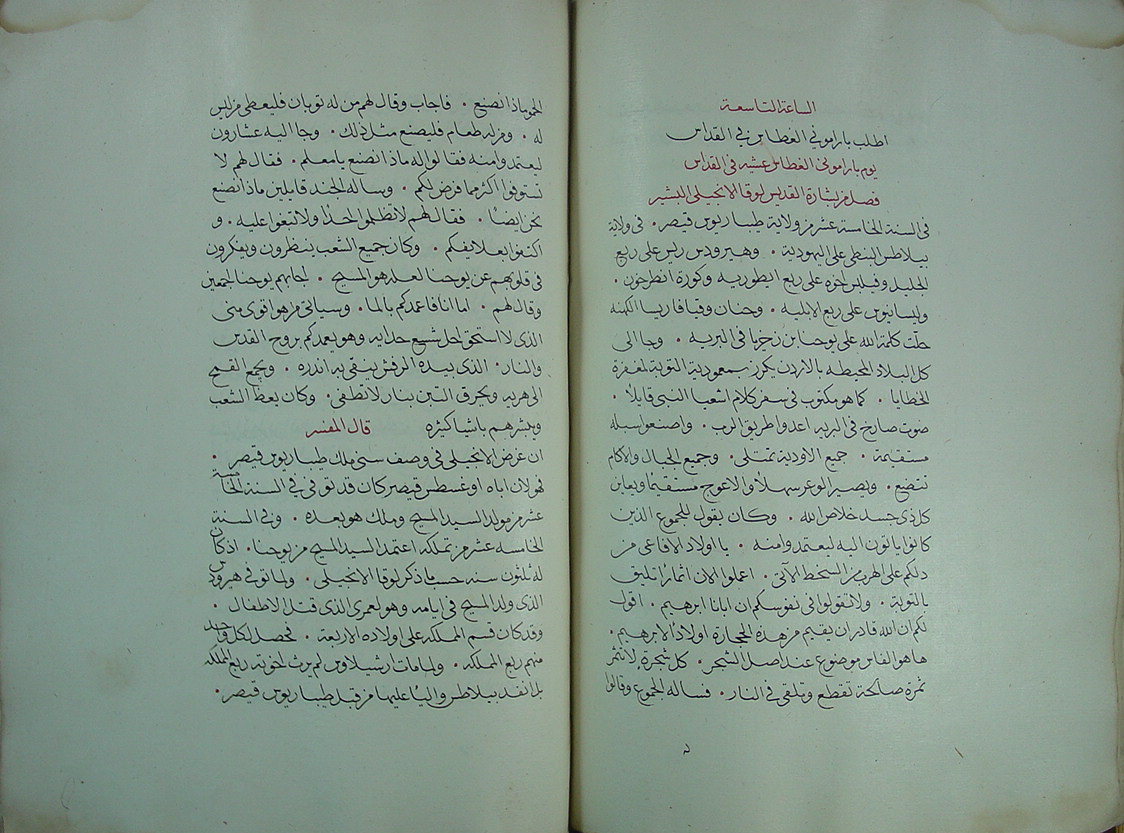 الساعة التاسعة
اطلب بارامونى الغطاس فى القداس
يوم بارامونى الغطاس عشيه فى القداس
فصل من بشارة القديس لوقا الانجيلى البشير
فى السنة الخامسة عشر من ولاية طيباريوس قيصر ٠ فى ولاية
بيلاطس البنطى على اليهودية ٠ وهيرودس ريس على ربع
الجليل وفيلبس اخوه على ربع ايطوريه وكورة انطرخون ٠
وليسانيوس على ربع الابليه ٠ وحنان وقيافا ريسا الكهنه
حلت كلمة الله على يوحنا بن زخريا فى البريه ٠ وجا الى
كل البلاد المحيطه بالاردن يكرز بمعمودية التوبة لمغفرة
الخطايا ٠ كما هو مكتوب فى سفر كلام اشعيا النبى قايلا ٠
صوت صارخ فى البريه اعدوا طريق الرب ٠ واصنعوا سبله
مستقيمة ٠ جميع الاودية تمتلى ٠ وجميع الجبال والاكام
تتضع ٠ ويصير الوعر سهلا والاعوج مستقيما ويعاين
كل ذى جسد خلاص الله ٠ وكان يقول للجموع الذين
كانوا ياتون اليه ليعتمدوا منه ٠ يا اولاد الافاعى من
دلكم على الهرب من السخط الآتى ٠ اعملوا الان اثمارا تليق
بالتوبة ٠ ولا تقولوا فى نفوسكم ان ابانا ابرهيم ٠ اقول
لكم ان الله قادر ان يقيم من هذه الحجارة اولادا لابرهيم ٠
ها هو الفاس موضوع عند اصل الشجر ٠ كل شجرة لا تثمر
ثمرة صالحة تقطع وتلقى فى النار ٠ فساله الجموع وقالوا
الجموع ماذا نصنع ٠ فاجاب وقال لهم من له ثوبان فليعطى من ليس
له ٠ ومن له طعام فليصنع مثل ذلك ٠ وجا اليه عشارون
ليعتمدوا منه فقالوا له ماذا نصنع يا معلم ٠ فقال لهم لا
تستوفوا اكثر مما فرض لكم ٠ وساله الجند قايلين ماذا نصنع
نحن ايضا ٠ فقال لهم لا تظلموا احدا ولا تبغوا عليه ٠ و
اكتفوا بعلايفكم ٠ وكان جميع الشعب ينظرون ويفكرون
فى قلوبهم عن يوحنا لعله هو المسيح ٠ اجابهم يوحنا اجمعين
وقال لهم ٠ اما انا فاعمدكم بالما ٠ وسياتى من هو اقوى منى
الذى لا استحق احل شسع حذايه وهو يعمدكم بروح القدس
والنار ٠ الذى بيده الرفش ينقى به اندره ٠ ويجمع القمح
الى هريه ويحرق التبن بنار لا تطفى ٠ وكان يعظ الشعب
ويبشرهم باشيا كثيره قال المفسر
ان غرض الانجيلى فى وصف سنى ملك طيباريوس قيصر ٠
فهو لان اباه اوغسطس قيصر كان قد توفى فى السنة الخامسة
عشر من مولد السيد المسيح وملك هو بعده ٠ وفى السنة
الخامسه عشر من تملكه اعتمد السيد المسيح من يوحنا ٠ اذ كان
له ثلثون سنه حسب ما ذكر لوقا الانجيلى ٠ ولما توفى هيرودس
الذى ولد المسيح فى ايامه وهو لعمرى الذى قتل الاطفال ٠
وقد كان قسم المملكه على اولاده الاربعة ٠ فحصل لكل واحد
منهم ربع المملكه ٠ ولما مات ارشيلاوس لم يرث اخوته ربع المملكه
بل انفد بيلاطس واليا عليها من قبل طيباريوس قيصر ٠